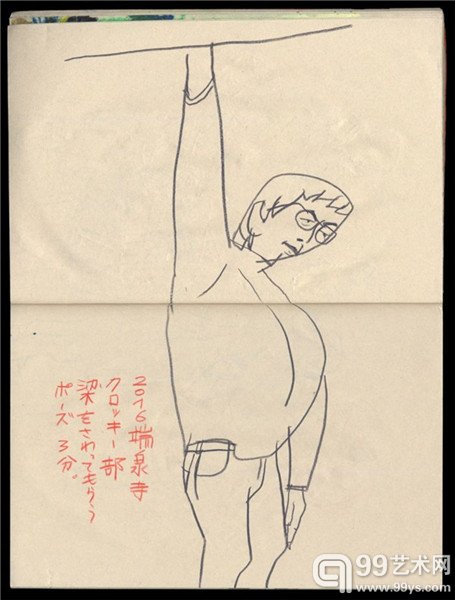 2016 瑞泉寺
クロッキー部
梁をさわってもらう
ポーズ 3分。
99艺术网
www.99ys.com